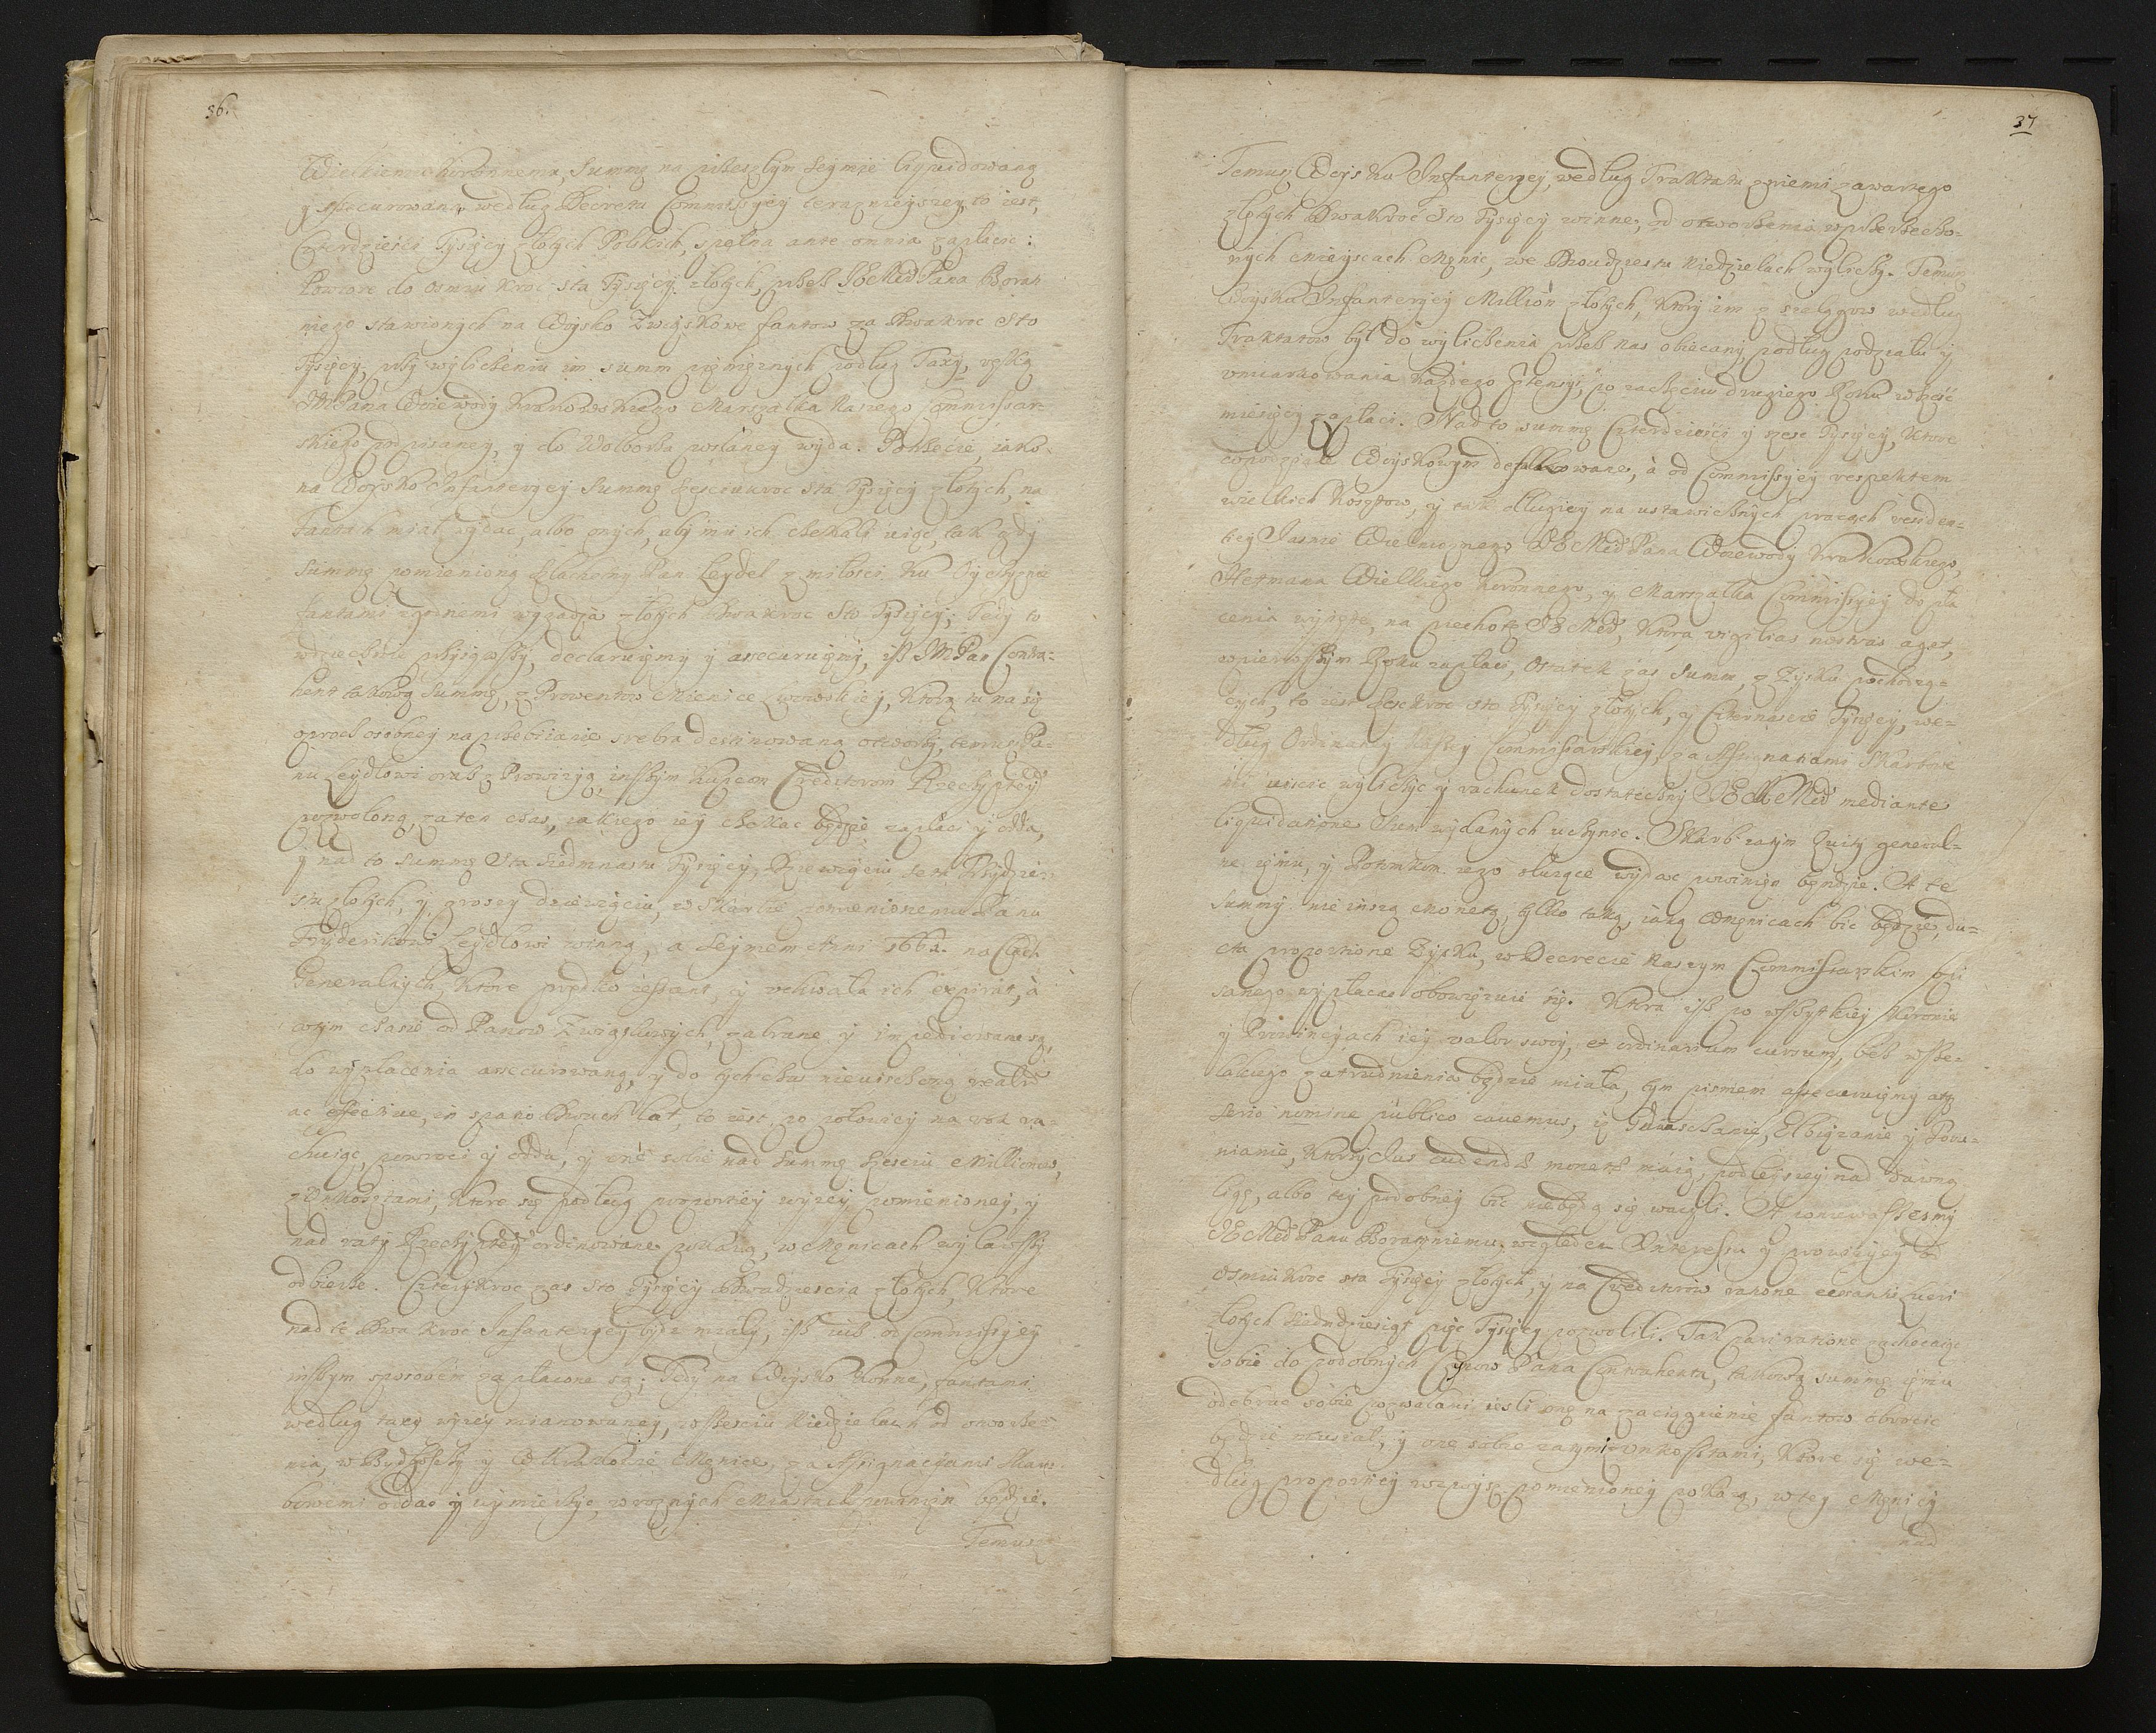 36.
Wielkiemu Koronnemu, Summę na przeszłym Seymie liquidowaną
y assecurowaną według Decretu Commissyey teraznieyszey, to iest,
Czterdzieści Tysięcy złotych Polskich, spełna ante omnia zapłacić:
Powtore do osmiu kroć sta Tysięcy złotych, przez JE Mśd Pana Boratyniego
stawionych na Woysko Związkowe fantow za Dwakroć Sto
Tysięcy, przy wyliczeniu im summ pieniężnych podług Taxy, ręką
JM Pana Woiewody Krakowskiego Marszałka Naszego Commissar-
skiego podpisaney, y do Wolborza posłaney wyda. Potrzecie, iako
na Woysko Infanteryey Summę sześciukroć sta Tysięcy złotych, na
Fantach miał wydać, albo onych, aby mu ich czekali, tak gdy
Summę pomienioną Szlachetny Pan Leydel z miłości ku Oyczyznie
fantami zgodnemi wygadza złotych Dwakroć Sto Tysięcy; Tedy to
wdzięcznie przyiąwszy, declaruiemy y assecuruiemy, isz JM Pan Contra-
hent takową Summę, z Prowentow Mienice Lwowskiey, ktorą tu na się
oprocz osobney na przebiianie srebra destinowaną otworzy, temuż Pa-
nu Leydlowi oraz z Prowizyą, inszym kupcom Creditorom Rzeczyptey
pozwoloną, za ten czas, iakiego iey czekać będzie zapłaci y odda,
y nad to summę Sta Siedmnastu Tysięcy, Dziewięciu set Trzydzie-
stu złotych, y groszy dziewięciu, w Skarbie pomienionemu Panu
Fryderikowi Leydlowi winną, a Seymem Anni 166 na Cłach
Generalnych, ktore prędko cessant, y uchwała ich expirat, à
w tym czasie od Panow Związkowych, zabrane y impediowane są,
do wypłacenia assecurowaną, y do tych czas nieuiszczoną realiter
ac effective, in spatio Dwuch lat, to iest, po połowicy na rok ra-
chuiąc, powroci y odda, y onę sobie nad Summę Sześciu Millionow,
z Unkosztami, ktore się podług proportiey wyżey pomienioney, y
nad raty Rzeczyptey ordinowane pokażą, w Męnicach wylawszy
odbierze. Czterykroć zas sto Tysięcy Dwadziescia złotych, ktore
nad te Dwa kroć Infanteryey bydz miały, isz iuż od Commissyey
inszym sposobem zapłacone są; Tedy na Woysko Konne, fantami
według taxy wyżey mianowaney, w sześciu Niedzielach od otworze-
nia, w Bydgoszczy y w Krakowie Męnice, za Assignacyami Skar-
bowemi oddać y wymieszyć, w roznych Miastach powinien będzie.
Temusz
37
Temusz Woysku Infanteryey, według Traktatu z niemi zawartego
złotych Dwakroć Sto Tysięcy winne, od otworzenia w przerzeczo-
nych mieyscach Męnic, we Dwudziestu Niedzielach wyliczy. Temuż
Woysku Infanteryey Million złotych, ktory im z szelągow według
Traktatow był do wyliczenia przez nas obiecany, podług podziału y
umiarkowania każdego, po zaczęciu drugiego Roku w sześć
miesięcy zapłaci. Nad to summę Czterdzieści y szesc Tysięcy, ktore
w podziale Woyskowym defalkowane, à od Commissyey respektem
wielkich kosztow, y tak długiey na ustawicznych pracach residen-
tiey Iasnie Wielmożnego JE Mśd Pana Woiewody Krakowskiego,
Hetmana Wielkiego Koronnego, y Marszałka Commissyey do pła
cenia wzięte, na piechotę JE Mśd, ktora vigilias nostras agat,
w pierwszym Roku zapłaci, Ostatek zas Summ, z Zysku pochodzą-
cych, to iest Szesckroć sto Tysięcy złotych, y Czternascie Tysięcy, we-
dług Ordinaney Naszey Commissarskiey, za Assignatiami Skarbowe
mi uiscić wyliczyć y rachunek dostateczny JE Mśd mediante
liquidatione Summ wydanych uczynić. Skarb zatym Quity general-
ne iemu, y Potomkom iego służące wydać powinien będzie. A te
Summy nie inszą monetą, tylko taką, iaką w Męnicach bić będzie, du-
cta proportione Zysku, w Decrecie Naszym Commissarskim opi
sanego wypłacać obowięzuie się. Ktora isz po wszytkiey Koronie
y Prowincyach iey valor swoy, et ordinarium cursum, bez wsze-
lakiego zatrudnienia będzie miała, tym pismem assecuruiemy atq
serio nomine publico cavemus, iż Gdansczanie, Elbiążanie y Toru-
nianie, ktorzy Ius cudendæ monetæ maią, podleyszey nad dawną
ligę, albo tey podobney bić nie będą się ważyli. A ponieważesmy
JE Mśd Panu Boratyniemu, względem Interessu y prowizyey od
osmiu kroć sta Tysięcy złotych, y na Creditorow ratione
złotych siedmdziesiąt pięć Tysięcy pozwolili. Tak pari ratione zachęcaiąc
sobie do podobnych Pana Contrahenta, takową summę iemu
odebrać sobie pozwalamy iesli onę na zaciągnienie fantow obrocić
będzie musiał, y onę sobie zarym z unkosztami, ktore się we-
dług proportiey wzwysz pomienioney pokażą, w tey Męnicy
nad